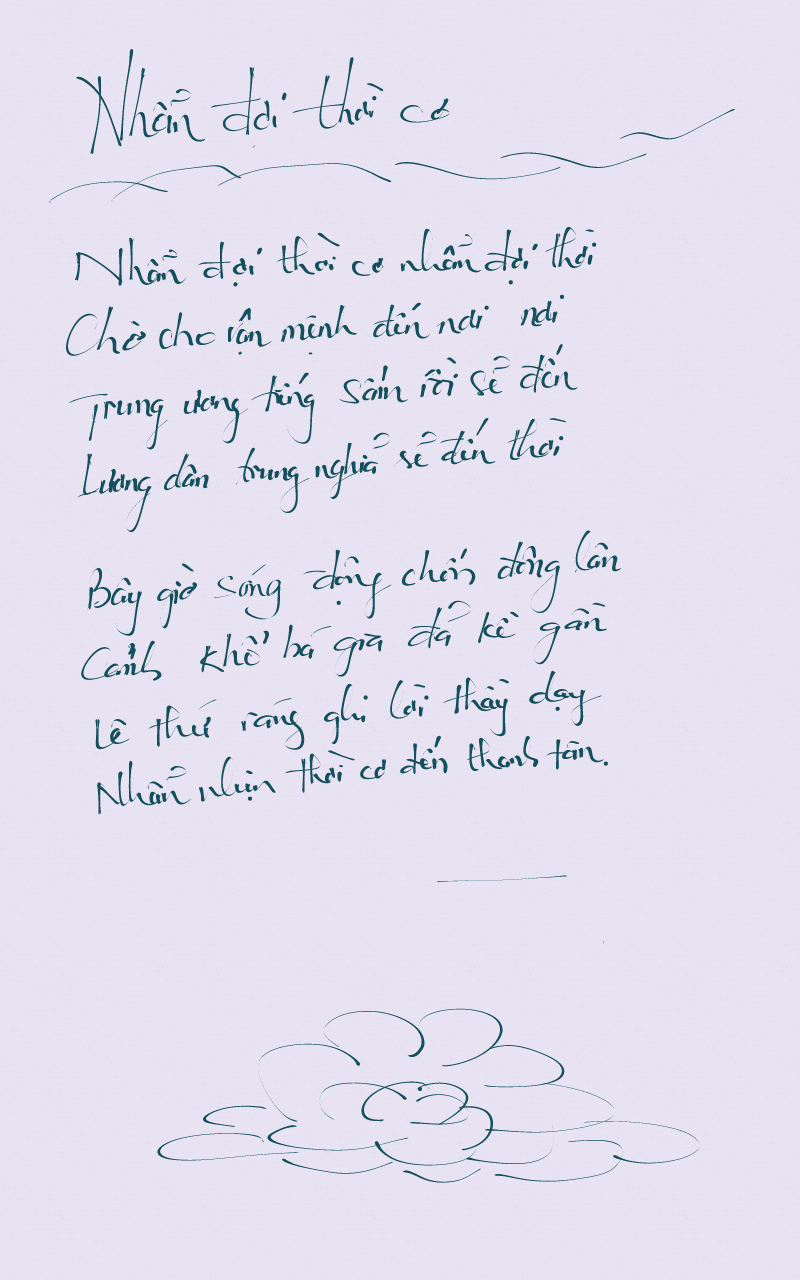 Nhẫn đợi thời cơ
Nhẫn đợi thời cơ nhẫn đợi thời
Chờ cho vận mệnh đến nơi nơi
Trung ương tiếng sấm rồi sẽ đến
Lương dân trung nghĩa sẽ đến thời
Bây giờ sống động chốn đông lân
Cảnh khổ bá gia đã kề gần
Lê thứ ráng ghi lời thầy dạy
Nhẫn nhịn thời cơ đến thanh tân.